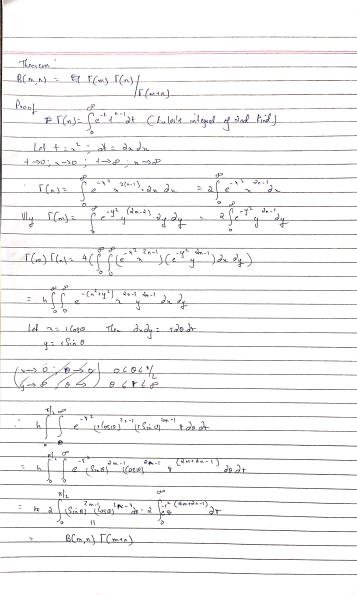 Theorem
B(m,n) = Γ(m) Γ(n) / Γ(m+n)
Proof
Γ(n) = ∫₀^∞ e^-t t^n-1 dt (Euler's integral of 2nd kind)
Let t = x² ; dt = 2x dx
t→0; x→0 ; t→∞ ; x→∞
∴ Γ(n) = ∫₀^∞ e^-x² x^2(n-1) 2x dx = 2∫₀^∞ e^-x² x^2n-1 dx
|||ly Γ(m) = ∫₀^∞ e^-y² y^(2m-2) 2y dy = 2∫₀^∞ e^-y² y^2m-1 dy
Γ(m) Γ(n) = 4(∫₀^∞ ∫₀^∞ (e^-x² x^2n-1)(e^-y² y^2m-1) dx dy)
= 4 ∫₀^∞ ∫₀^∞ e^-(x²+y²) x^2n-1 y^2m-1 dx dy
Let x = r cosθ Then dx dy = r dθ dr
y = r Sin θ
0≤θ≤π/2
0≤r≤∞
∴ 4 ∫₀^π/2 ∫₀^∞ e^-r² (r cosθ)^2n-1 (r Sin θ)^2m-1 r dθ dr
= 4 ∫₀^π/2 ∫₀^∞ e^-r² (Sin θ)^2m-1 (cosθ)^2n-1 r^(2m+2n-1) dθ dr
= 2 ∫₀^π/2 (Sin θ)^2m-1 (cosθ)^2n-1 dθ · 2 ∫₀^∞ e^-r² r^(2m+2n-1) dr
||
= B(m,n) Γ(m+n)